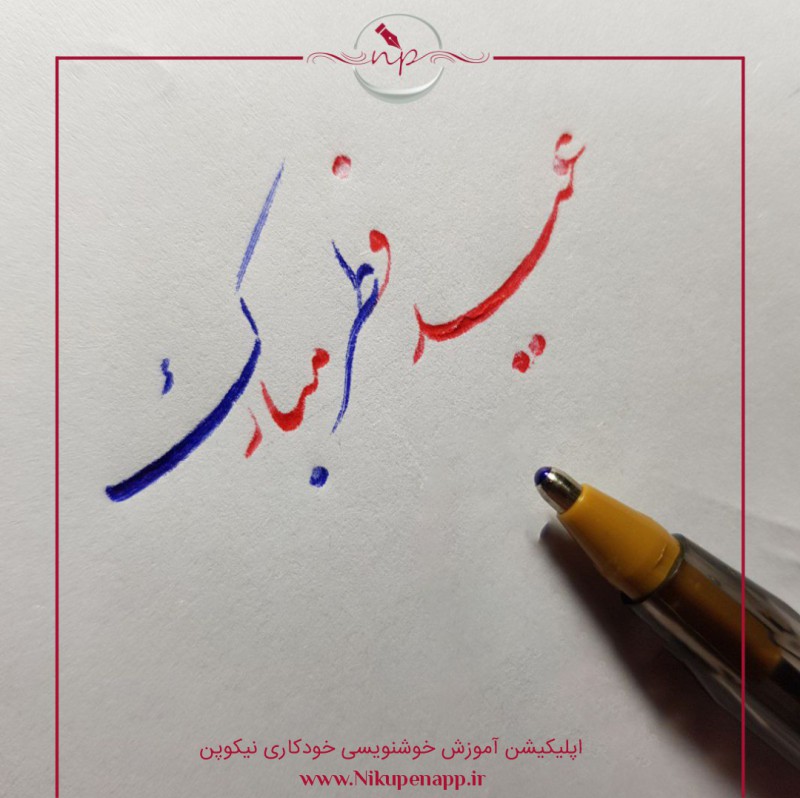 np
عید فطر مبارک
اپلیکیشن آموزش خوشنویسی خودکاری نیکوپن
www.Nikupenapp.ir